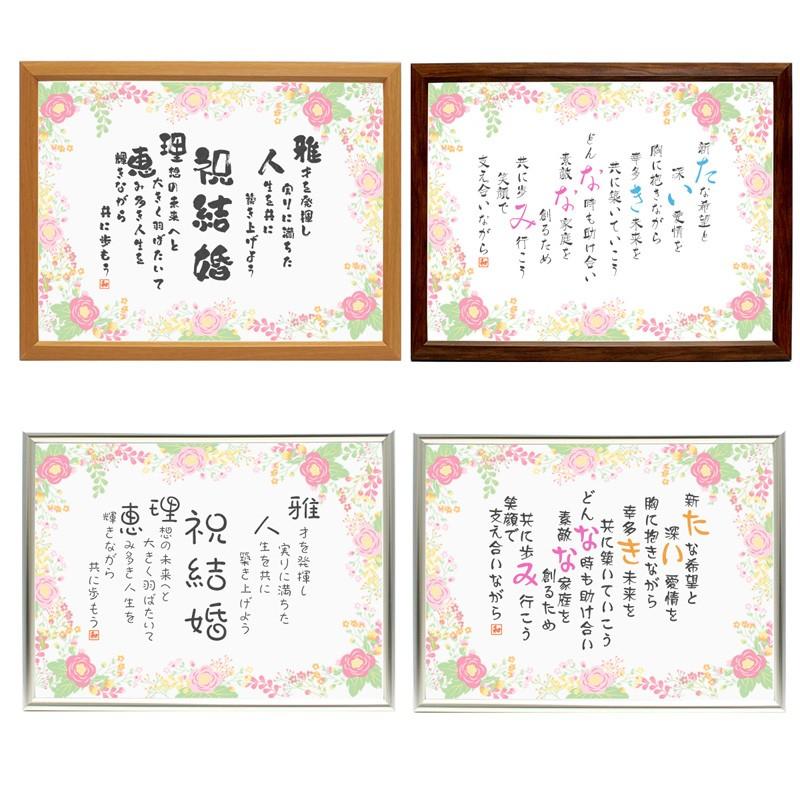 雅才を発揮し
実りに満ちた
人生を共に
築き上げよう
祝結婚
理想の未来へと
大きく羽ばたいて
恵み多き人生を
輝きながら
共に歩もう
新たな希望と
深い愛情を
胸に抱きながら
幸多き未来を
共に築いていこう
どんな時も助け合い
素敵な家庭を
創るため
共に歩み行こう
笑顔で
支え合いながら
雅才を発揮し
実りに満ちた
人生を共に
築き上げよう
祝結婚
理想の未来へと
大きく羽ばたいて
恵み多き人生を
輝きながら
共に歩もう
新たな希望と
深い愛情を
胸に抱きながら
幸多き未来を
共に築いていこう
どんな時も助け合い
素敵な家庭を
創るため
共に歩み行こう
笑顔で
支え合いながら